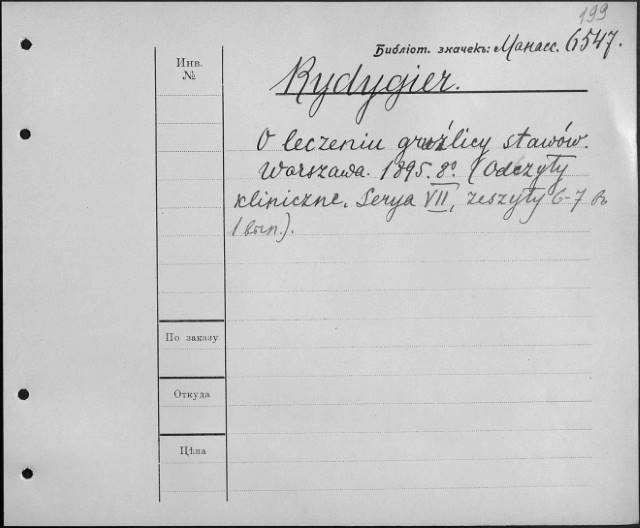 199
Библіот. значекъ: Манасс. 6547.
Инв.
№
Rydygier.
O leczeniu gruźlicy stawów.
Warszawa. 1895. 8º. (Odczyty
kliniczne. Serya VII, zeszyty 6-7 въ
1 вып.).
По заказу
Откуда
Цѣна